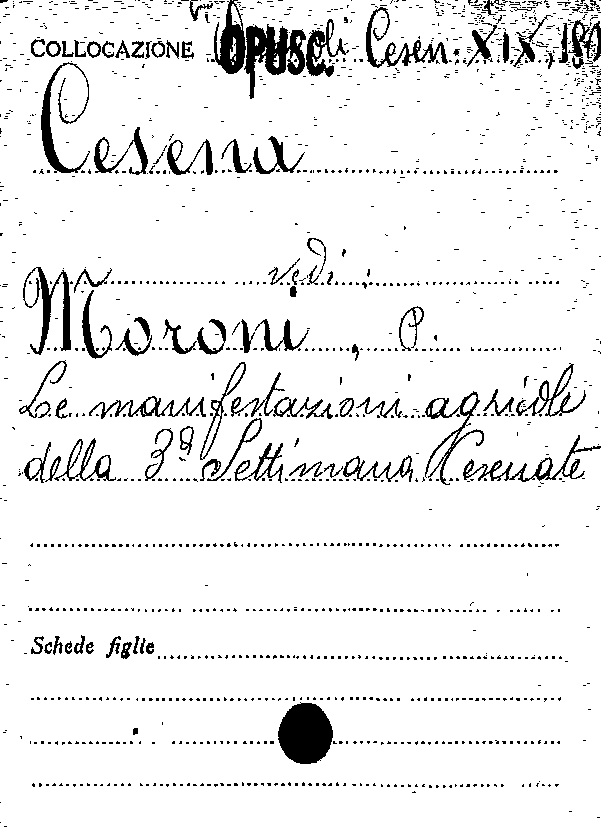 COLLOCAZIONE OPUSC. Cesen. XIX, 180
Cesena
vedi:
Moroni, P.
Le manifestazioni agricole
della 3ª Settimana Cesenate
Schede figlie